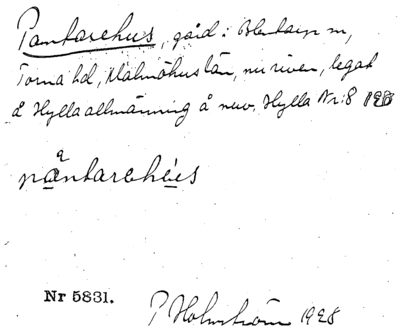 Pantarehus, gård i Blentarp sn,
Torna hd, Malmöhus län, nu riven, legat
å Hylla allmänning å nuv. Hylla Nr: 8 1928
påntarehé̱s
Nr 5831.
P Holmström 1928